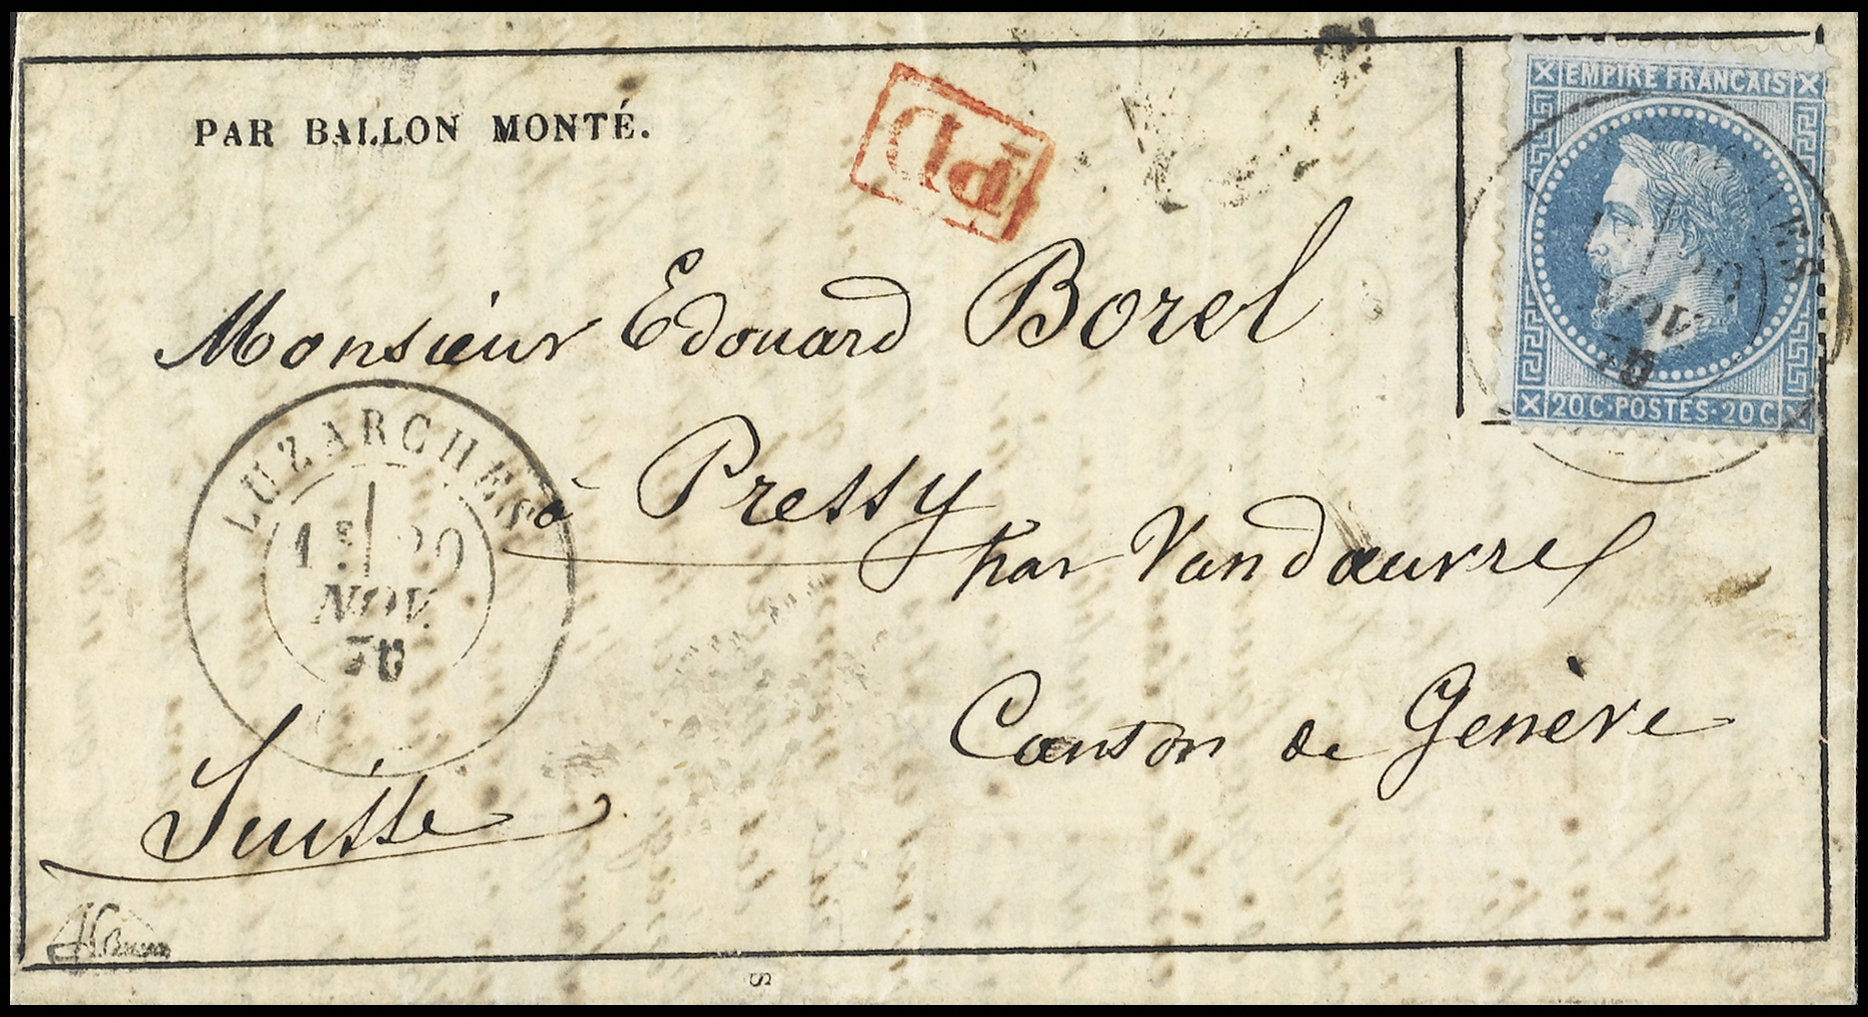 PAR BALLON MONTÉ.
PD
EMPIRE FRANCAIS
20 C. POSTES. 20 C
Monsieur Edouard Borel
à Pressy
par Vandœuvres
Canton de Genève
Suisse
LUZARCHES
1E 20
NOV.
70
NOV.
70
S